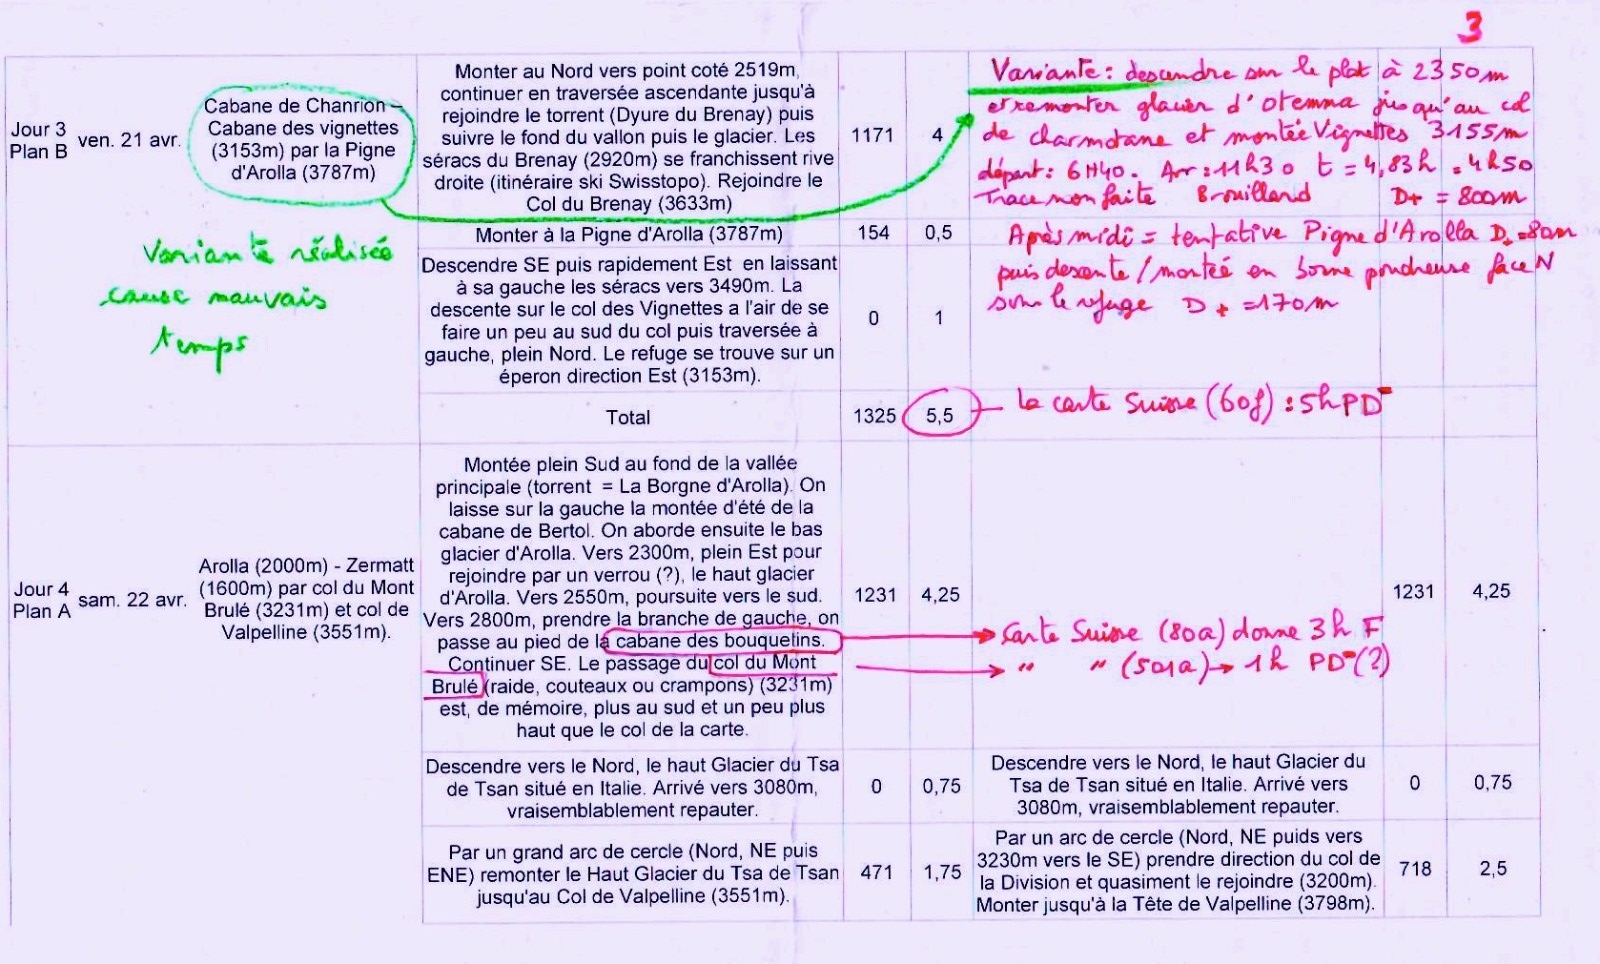 3
Jour 3
Plan B
ven. 21 avr.
Cabane de Chanrion –
Cabane des vignettes
(3153m) par la Pigne
d'Arolla (3787m)
Monter au Nord vers point coté 2519m,
continuer en traversée ascendante jusqu'à
rejoindre le torrent (Dyure du Brenay) puis
suivre le fond du vallon puis le glacier. Les
séracs du Brenay (2920m) se franchissent rive
droite (itinéraire ski Swisstopo). Rejoindre le
Col du Brenay (3633m)
1171
4
Variante : descendre sur le plat à 2350m
et remonter glacier d'Otemma jusqu'au col
de charmotane et montée Vignettes 3155m
départ : 6H40. Arr : 11h30 t = 4,83h = 4h50
Trace non faite Brouillard D+ = 800m
Variante réalisée
cause mauvais
temps
Monter à la Pigne d'Arolla (3787m)
154
0,5
Après midi = tentative Pigne d'Arolla D+=80m
puis descente / montée en bonne poudreuse face N
sous le refuge D+ =170m
Descendre SE puis rapidement Est en laissant
à sa gauche les séracs vers 3490m. La
descente sur le col des Vignettes a l'air de se
faire un peu au sud du col puis traversée à
gauche, plein Nord. Le refuge se trouve sur un
éperon direction Est (3153m).
0
1
Total
1325
5,5
la carte Suisse (60f) : 5h PD-
Jour 4
Plan A
sam. 22 avr.
Arolla (2000m) - Zermatt
(1600m) par col du Mont
Brulé (3231m) et col de
Valpelline (3551m).
Montée plein Sud au fond de la vallée
principale (torrent = La Borgne d'Arolla). On
laisse sur la gauche la montée d'été de la
cabane de Bertol. On aborde ensuite le bas
glacier d'Arolla. Vers 2300m, plein Est pour
rejoindre par un verrou (?), le haut glacier
d'Arolla. Vers 2550m, poursuite vers le sud.
Vers 2800m, prendre la branche de gauche, on
passe au pied de la cabane des bouquetins.
Continuer SE. Le passage du col du Mont
Brulé (raide, couteaux ou crampons) (3231m)
est, de mémoire, plus au sud et un peu plus
haut que le col de la carte.
1231
4,25
Carte Suisse (80a) donne 3h F
" " (501a) → 1h PD- (?)
1231
4,25
Descendre vers le Nord, le haut Glacier du Tsa
de Tsan situé en Italie. Arrivé vers 3080m,
vraisemblablement repauter.
0
0,75
Descendre vers le Nord, le haut Glacier du
Tsa de Tsan situé en Italie. Arrivé vers
3080m, vraisemblablement repauter.
0
0,75
Par un grand arc de cercle (Nord, NE puis
ENE) remonter le Haut Glacier du Tsa de Tsan
jusqu'au Col de Valpelline (3551m).
471
1,75
Par un arc de cercle (Nord, NE puids vers
3230m vers le SE) prendre direction du col de
la Division et quasiment le rejoindre (3200m).
Monter jusqu'à la Tête de Valpelline (3798m).
718
2,5